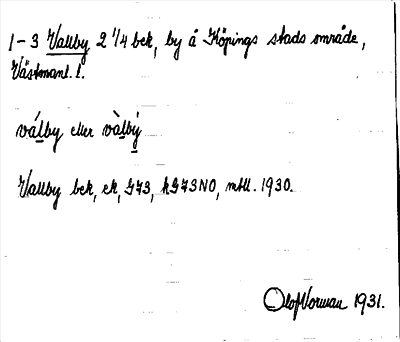 1-3 Vallby 2 1/4 bek, by å Köpings stads område,
Västmanl. l.
válby eller vàlbý
Vallby bek, ek, G73, kG73NO, mtll. 1930.
Olof Norman 1931.